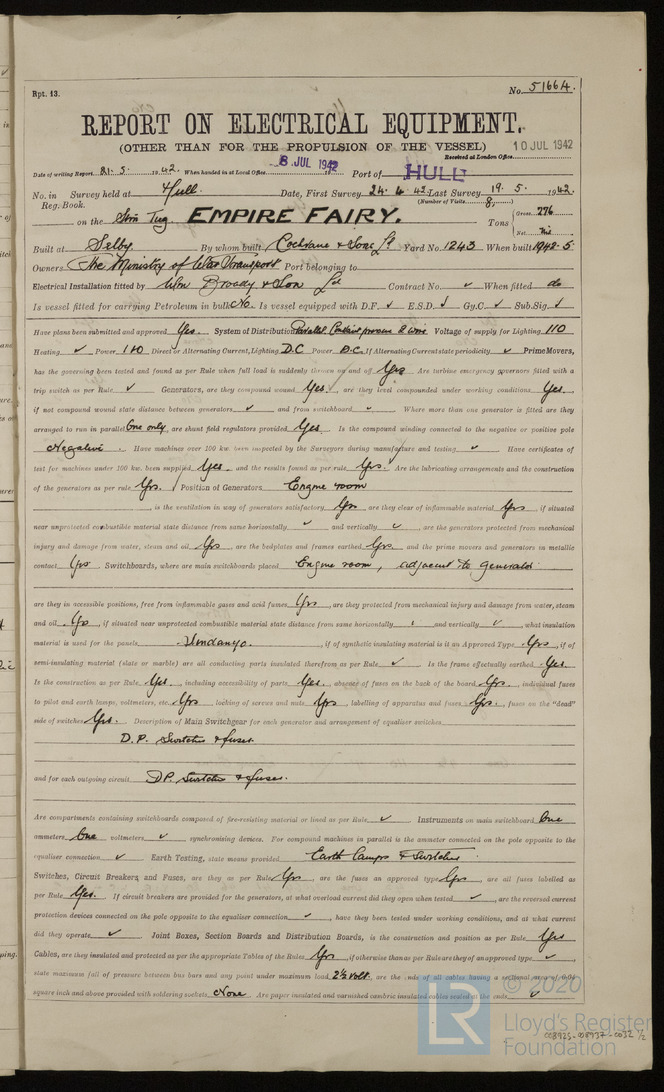 Rpt. 13.
No. 51664.
REPORT ON ELECTRICAL EQUIPMENT.
(OTHER THAN FOR THE PROPULSION OF THE VESSEL)
10 JUL 1942
Received at London Office
Date of writing Report 21. 5. 1942. When handed in at Local Office 8 JUL 1942 Port of HULL
No. in Survey held at Hull. Date, First Survey 24. 4. 42 Last Survey 19. 5. 1942.
Reg. Book. (Number of Visits 8.)
on the Stm Tug. EMPIRE FAIRY. Tons { Gross 276
Net Nil
Built at Selby. By whom built Cochrane & Sons Ld Yard No. 1243 When built 1942-5
Owners The Ministry of War Transport Port belonging to
Electrical Installation fitted by Wm Broady & Son Ld Contract No. ✓ When fitted do
Is vessel fitted for carrying Petroleum in bulk No. Is vessel equipped with D.F. ✓ E.S.D. ✓ Gy.C. ✓ Sub.Sig. ✓
Have plans been submitted and approved Yes. System of Distribution Parallel Constant pressure 2 wire Voltage of supply for Lighting 110
Heating ✓ Power 110 Direct or Alternating Current, Lighting DC Power D.C. If Alternating Current state periodicity ✓ Prime Movers,
has the governing been tested and found as per Rule when full load is suddenly thrown on and off Yes Are turbine emergency governors fitted with a
trip switch as per Rule ✓ Generators, are they compound wound Yes. are they level compounded under working conditions Yes.
if not compound wound state distance between generators ✓ and from switchboard ✓ Where more than one generator is fitted are they
arranged to run in parallel One only, are shunt field regulators provided Yes Is the compound winding connected to the negative or positive pole
Negative. Have machines over 100 kw. been inspected by the Surveyors during manufacture and testing ✓ Have certificates of
test for machines under 100 kw. been supplied Yes. and the results found as per rule Yes. Are the lubricating arrangements and the construction
of the generators as per rule Yes. Position of Generators Engine room
, is the ventilation in way of generators satisfactory Yes are they clear of inflammable material Yes, if situated
near unprotected combustible material state distance from same horizontally ✓ and vertically ✓, are the generators protected from mechanical
injury and damage from water, steam and oil Yes are the bedplates and frames earthed Yes. and the prime movers and generators in metallic
contact Yes. Switchboards, where are main switchboards placed Engine room, adjacent to generator
are they in accessible positions, free from inflammable gases and acid fumes Yes, are they protected from mechanical injury and damage from water, steam
and oil Yes, if situated near unprotected combustible material state distance from same horizontally ✓ and vertically ✓, what insulation
material is used for the panels Sindanyo., if of synthetic insulating material is it an Approved Type Yes, if of
semi-insulating material (slate or marble) are all conducting parts insulated therefrom as per Rule ✓ Is the frame effectually earthed Yes.
Is the construction as per Rule Yes., including accessibility of parts Yes. absence of fuses on the back of the board Yes, individual fuses
to pilot and earth lamps, voltmeters, etc. Yes locking of screws and nuts Yes, labelling of apparatus and fuses Yes., fuses on the "dead"
side of switches Yes. Description of Main Switchgear for each generator and arrangement of equaliser switches
D.P. Switches & fuses.
and for each outgoing circuit DP. Switches & fuses.
Are compartments containing switchboards composed of fire-resisting material or lined as per Rule ✓ Instruments on main switchboard One
ammeters One voltmeters ✓ synchronising devices. For compound machines in parallel is the ammeter connected on the pole opposite to the
equaliser connection ✓ Earth Testing, state means provided Earth Lamps & Switches.
Switches, Circuit Breakers and Fuses, are they as per Rule Yes, are the fuses an approved type Yes, are all fuses labelled as
per Rule Yes. If circuit breakers are provided for the generators, at what overload current did they open when tested ✓, are the reversed current
protection devices connected on the pole opposite to the equaliser connection ✓, have they been tested under working conditions, and at what current
did they operate ✓ Joint Boxes, Section Boards and Distribution Boards, is the construction and position as per Rule Yes
Cables, are they insulated and protected as per the appropriate Tables of the Rules Yes, if otherwise than as per Rule are they of an approved type ✓,
state maximum fall of pressure between bus bars and any point under maximum load 2½ volt. are the ends of all cables having a sectional area of 0.04
square inch and above provided with soldering sockets None Are paper insulated and varnished cambric insulated cables sealed at the ends ✓
© 2020
LR
Lloyd's Register
Foundation
008925-008937-0032 ½